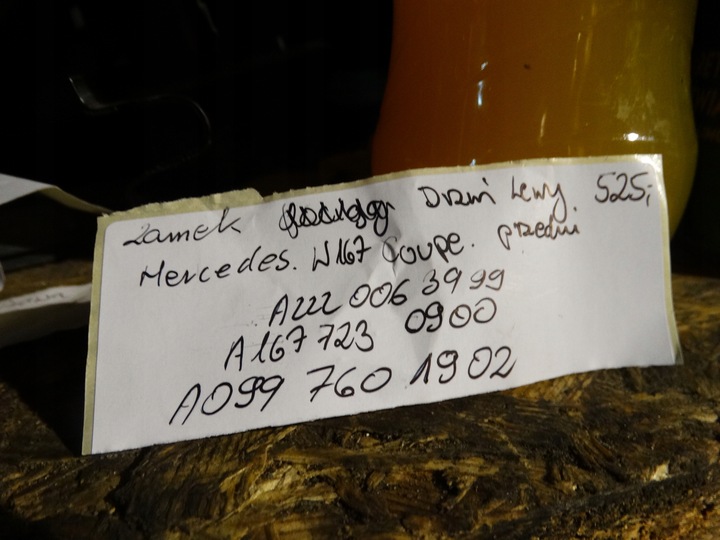 Zamek Drzwi Lewy 525,-
Mercedes. W167 Coupe. przedni
A222 006 3999
A167 723 0900
A099 760 1902